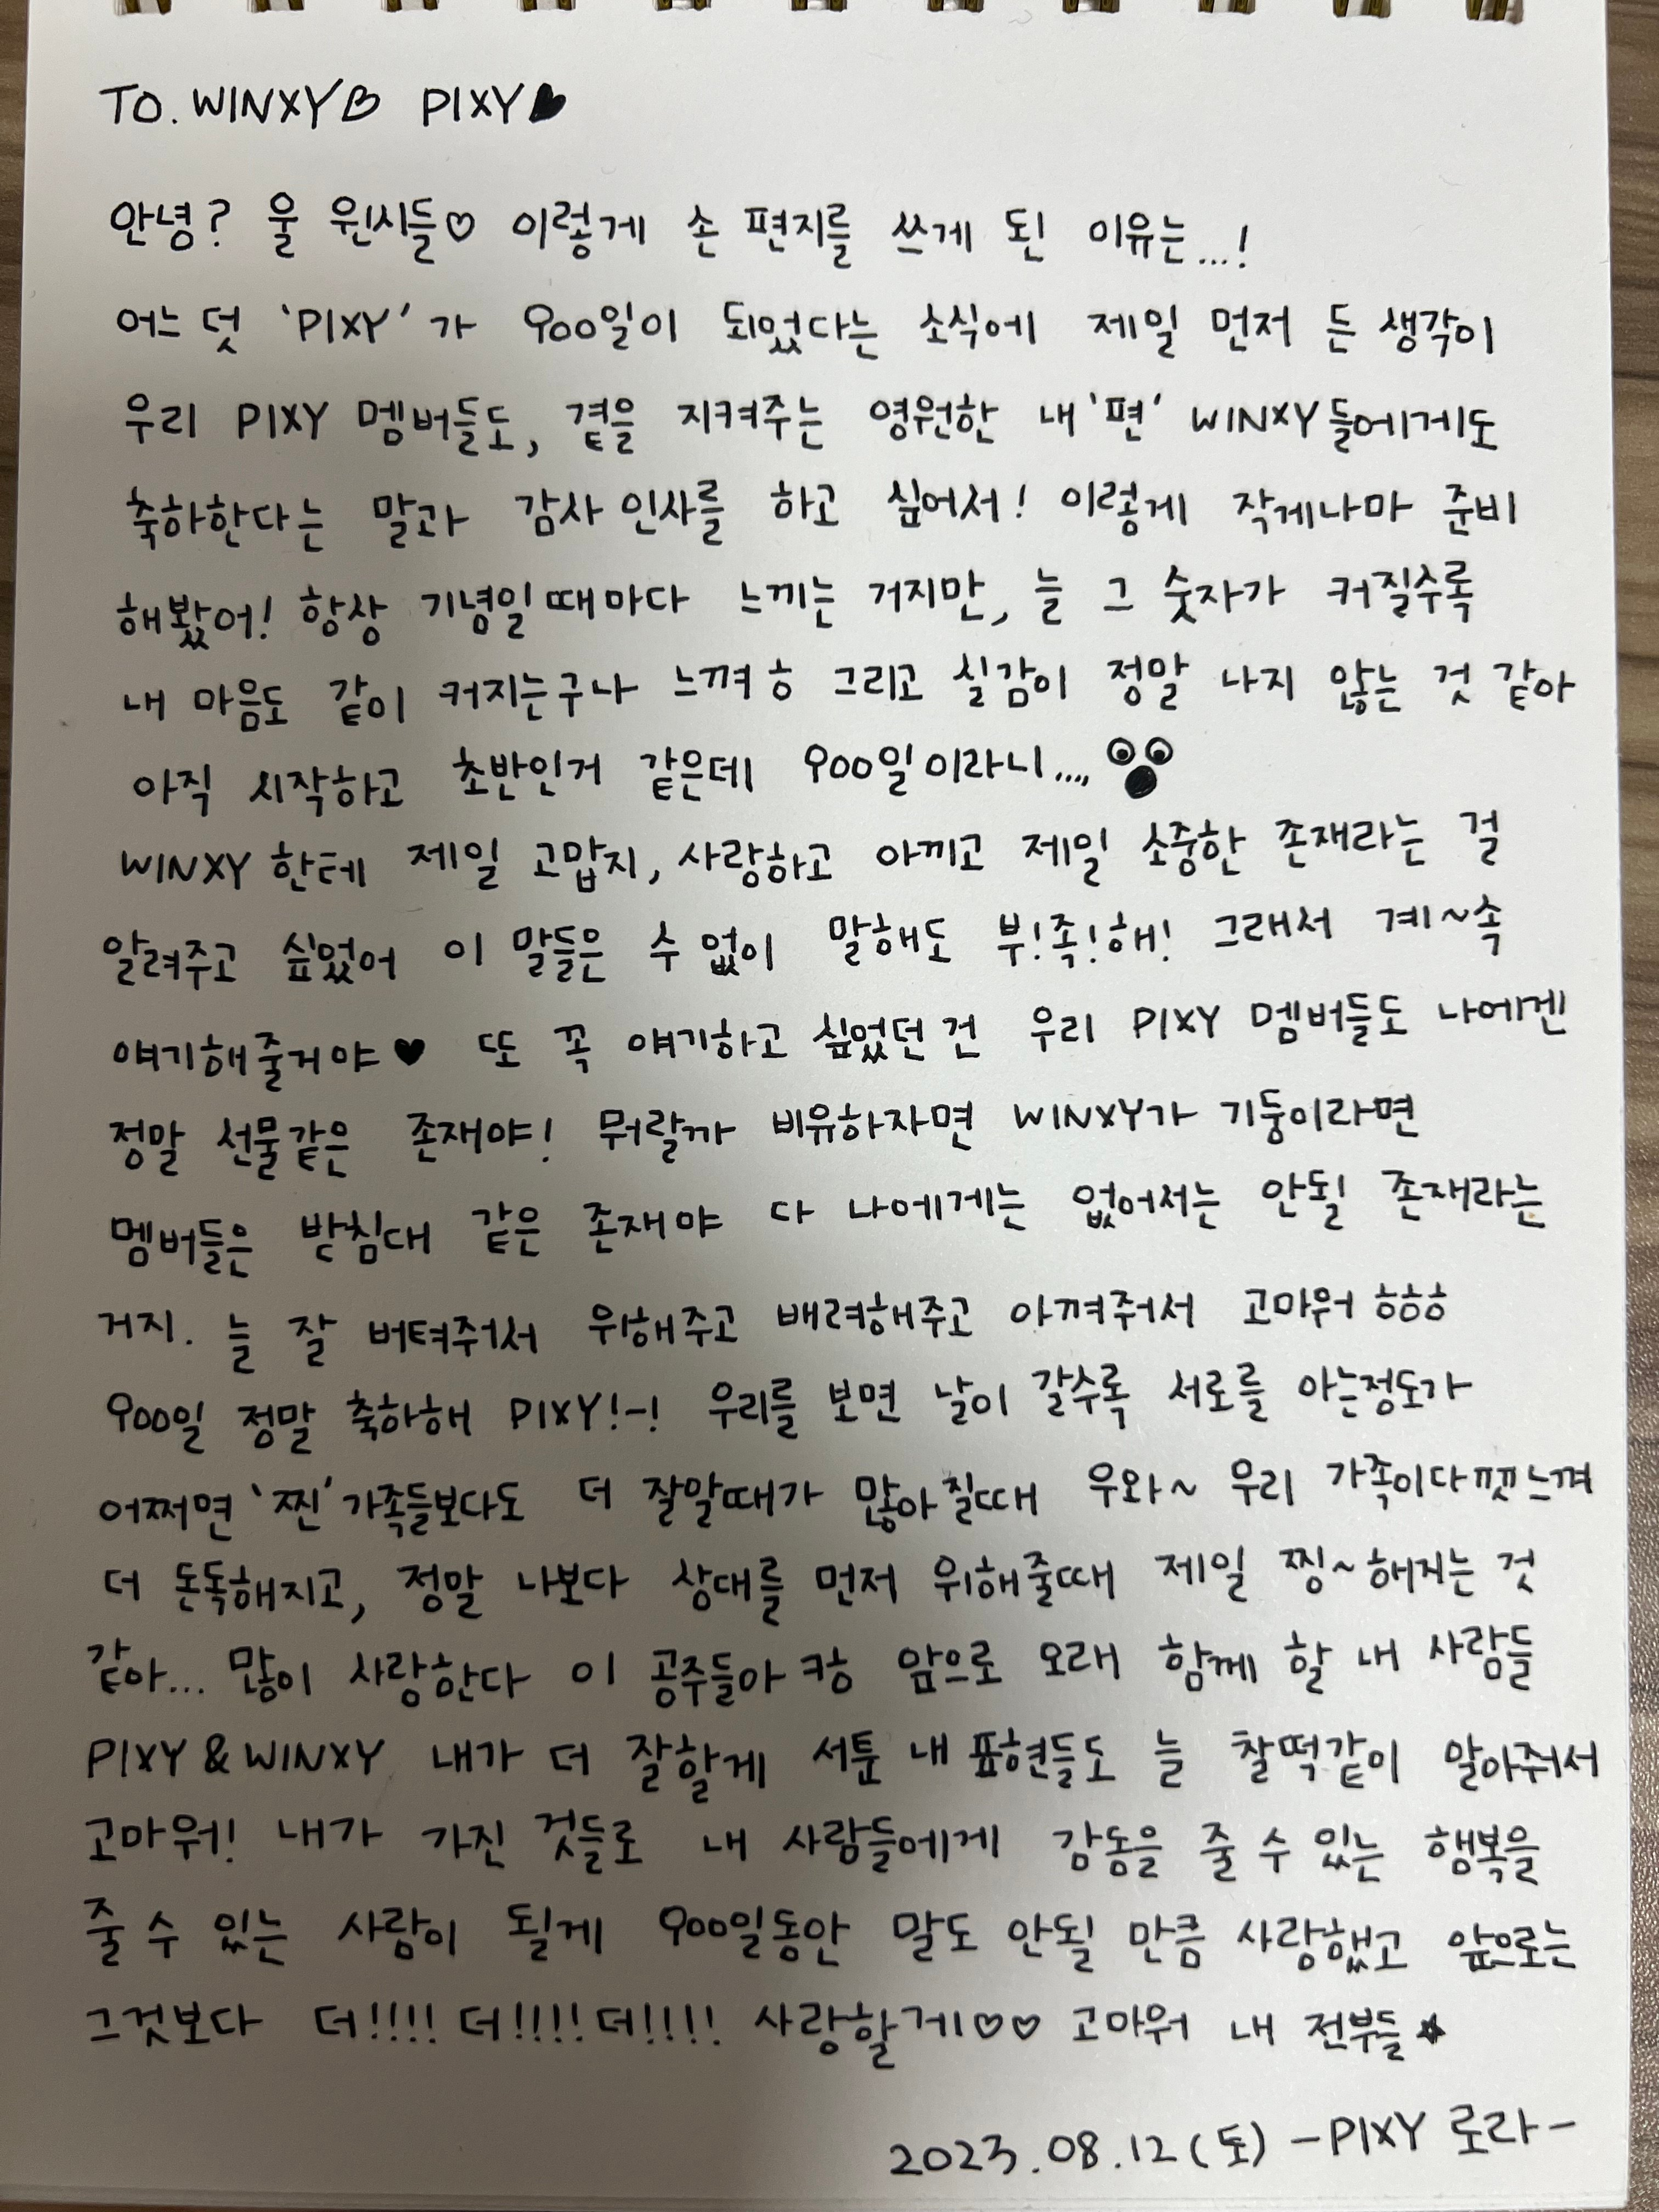 TO. WINXY♡ PIXY♥
안녕? 울 윈시들♡ 이렇게 손 편지를 쓰게 된 이유는...!
어느 덧 'PIXY'가 900일이 되었다는 소식에 제일 먼저 든 생각이
우리 PIXY 멤버들도, 곁을 지켜주는 영원한 내'편' WINXY들에게도
축하한다는 말과 감사 인사를 하고 싶어서! 이렇게 작게나마 준비
해봤어! 항상 기념일때마다 느끼는 거지만, 늘 그 숫자가 커질수록
내 마음도 같이 커지는구나 느껴ㅎ 그리고 실감이 정말 나지 않는 것 같아
아직 시작하고 초반인거 같은데 900일이라니....
WINXY한테 제일 고맙지, 사랑하고 아끼고 제일 소중한 존재라는 걸
알려주고 싶었어 이 말들은 수 없이 말해도 부!족!해! 그래서 계~속
얘기해줄거야♥ 또 꼭 얘기하고 싶었던 건 우리 PIXY 멤버들도 나에겐
정말 선물같은 존재야! 뭐랄까 비유하자면 WINXY가 기둥이라면
멤버들은 받침대 같은 존재야 다 나에게는 없어서는 안될 존재라는
거지. 늘 잘 버텨줘서 위해주고 배려해주고 아껴줘서 고마워 ㅎㅎㅎ
900일 정말 축하해 PIXY!-! 우리를 보면 날이 갈수록 서로를 아는정도가
어쩌면 '찐'가족들보다도 더 잘알때가 많아질때 우와~ 우리 가족이다 느껴
더 돈독해지고, 정말 나보다 상대를 먼저 위해줄때 제일 찡~해지는 것
같아... 많이 사랑한다 이 공주들아 캉 앞으로 오래 함께 할 내 사람들
PIXY & WINXY 내가 더 잘할게 서툰 내 표현들도 늘 찰떡같이 알아줘서
고마워! 내가 가진 것들로 내 사람들에게 감동을 줄 수 있는 행복을
줄 수 있는 사람이 될게 900일동안 말도 안될 만큼 사랑했고 앞으로는
그것보다 더!!!! 더!!!! 더!!!! 사랑할게♡♡ 고마워 내 전부들★
2023.08.12(토) -PIXY 로라-